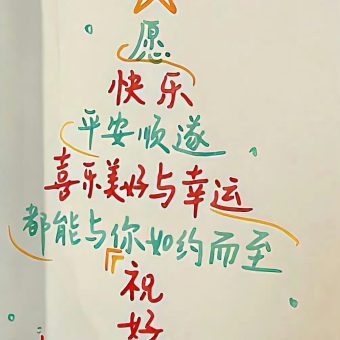 愿
快乐
平安顺遂
喜乐美好与幸运
都能与你如约而至
祝
好